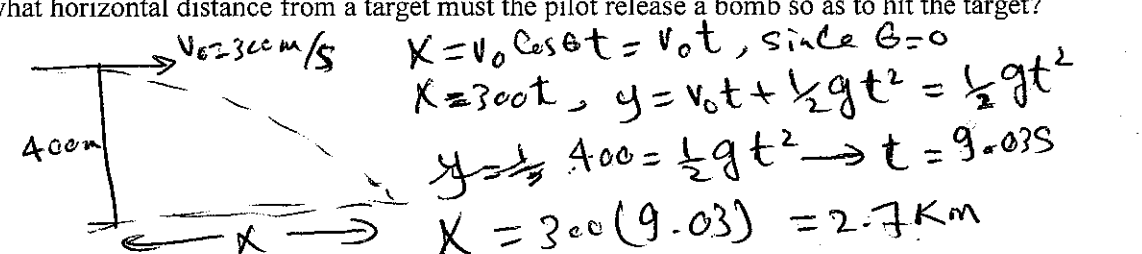 what horizontal distance from a target must the pilot release a bomb so as to hit the target?
V₀=300m/s
X = V₀ Cosθt = V₀t, since θ=0
X=300t, y = V₀t + ½gt² = ½gt²
400m
400 = ½gt² → t = 9.03S
X = 300(9.03) = 2.7Km
X